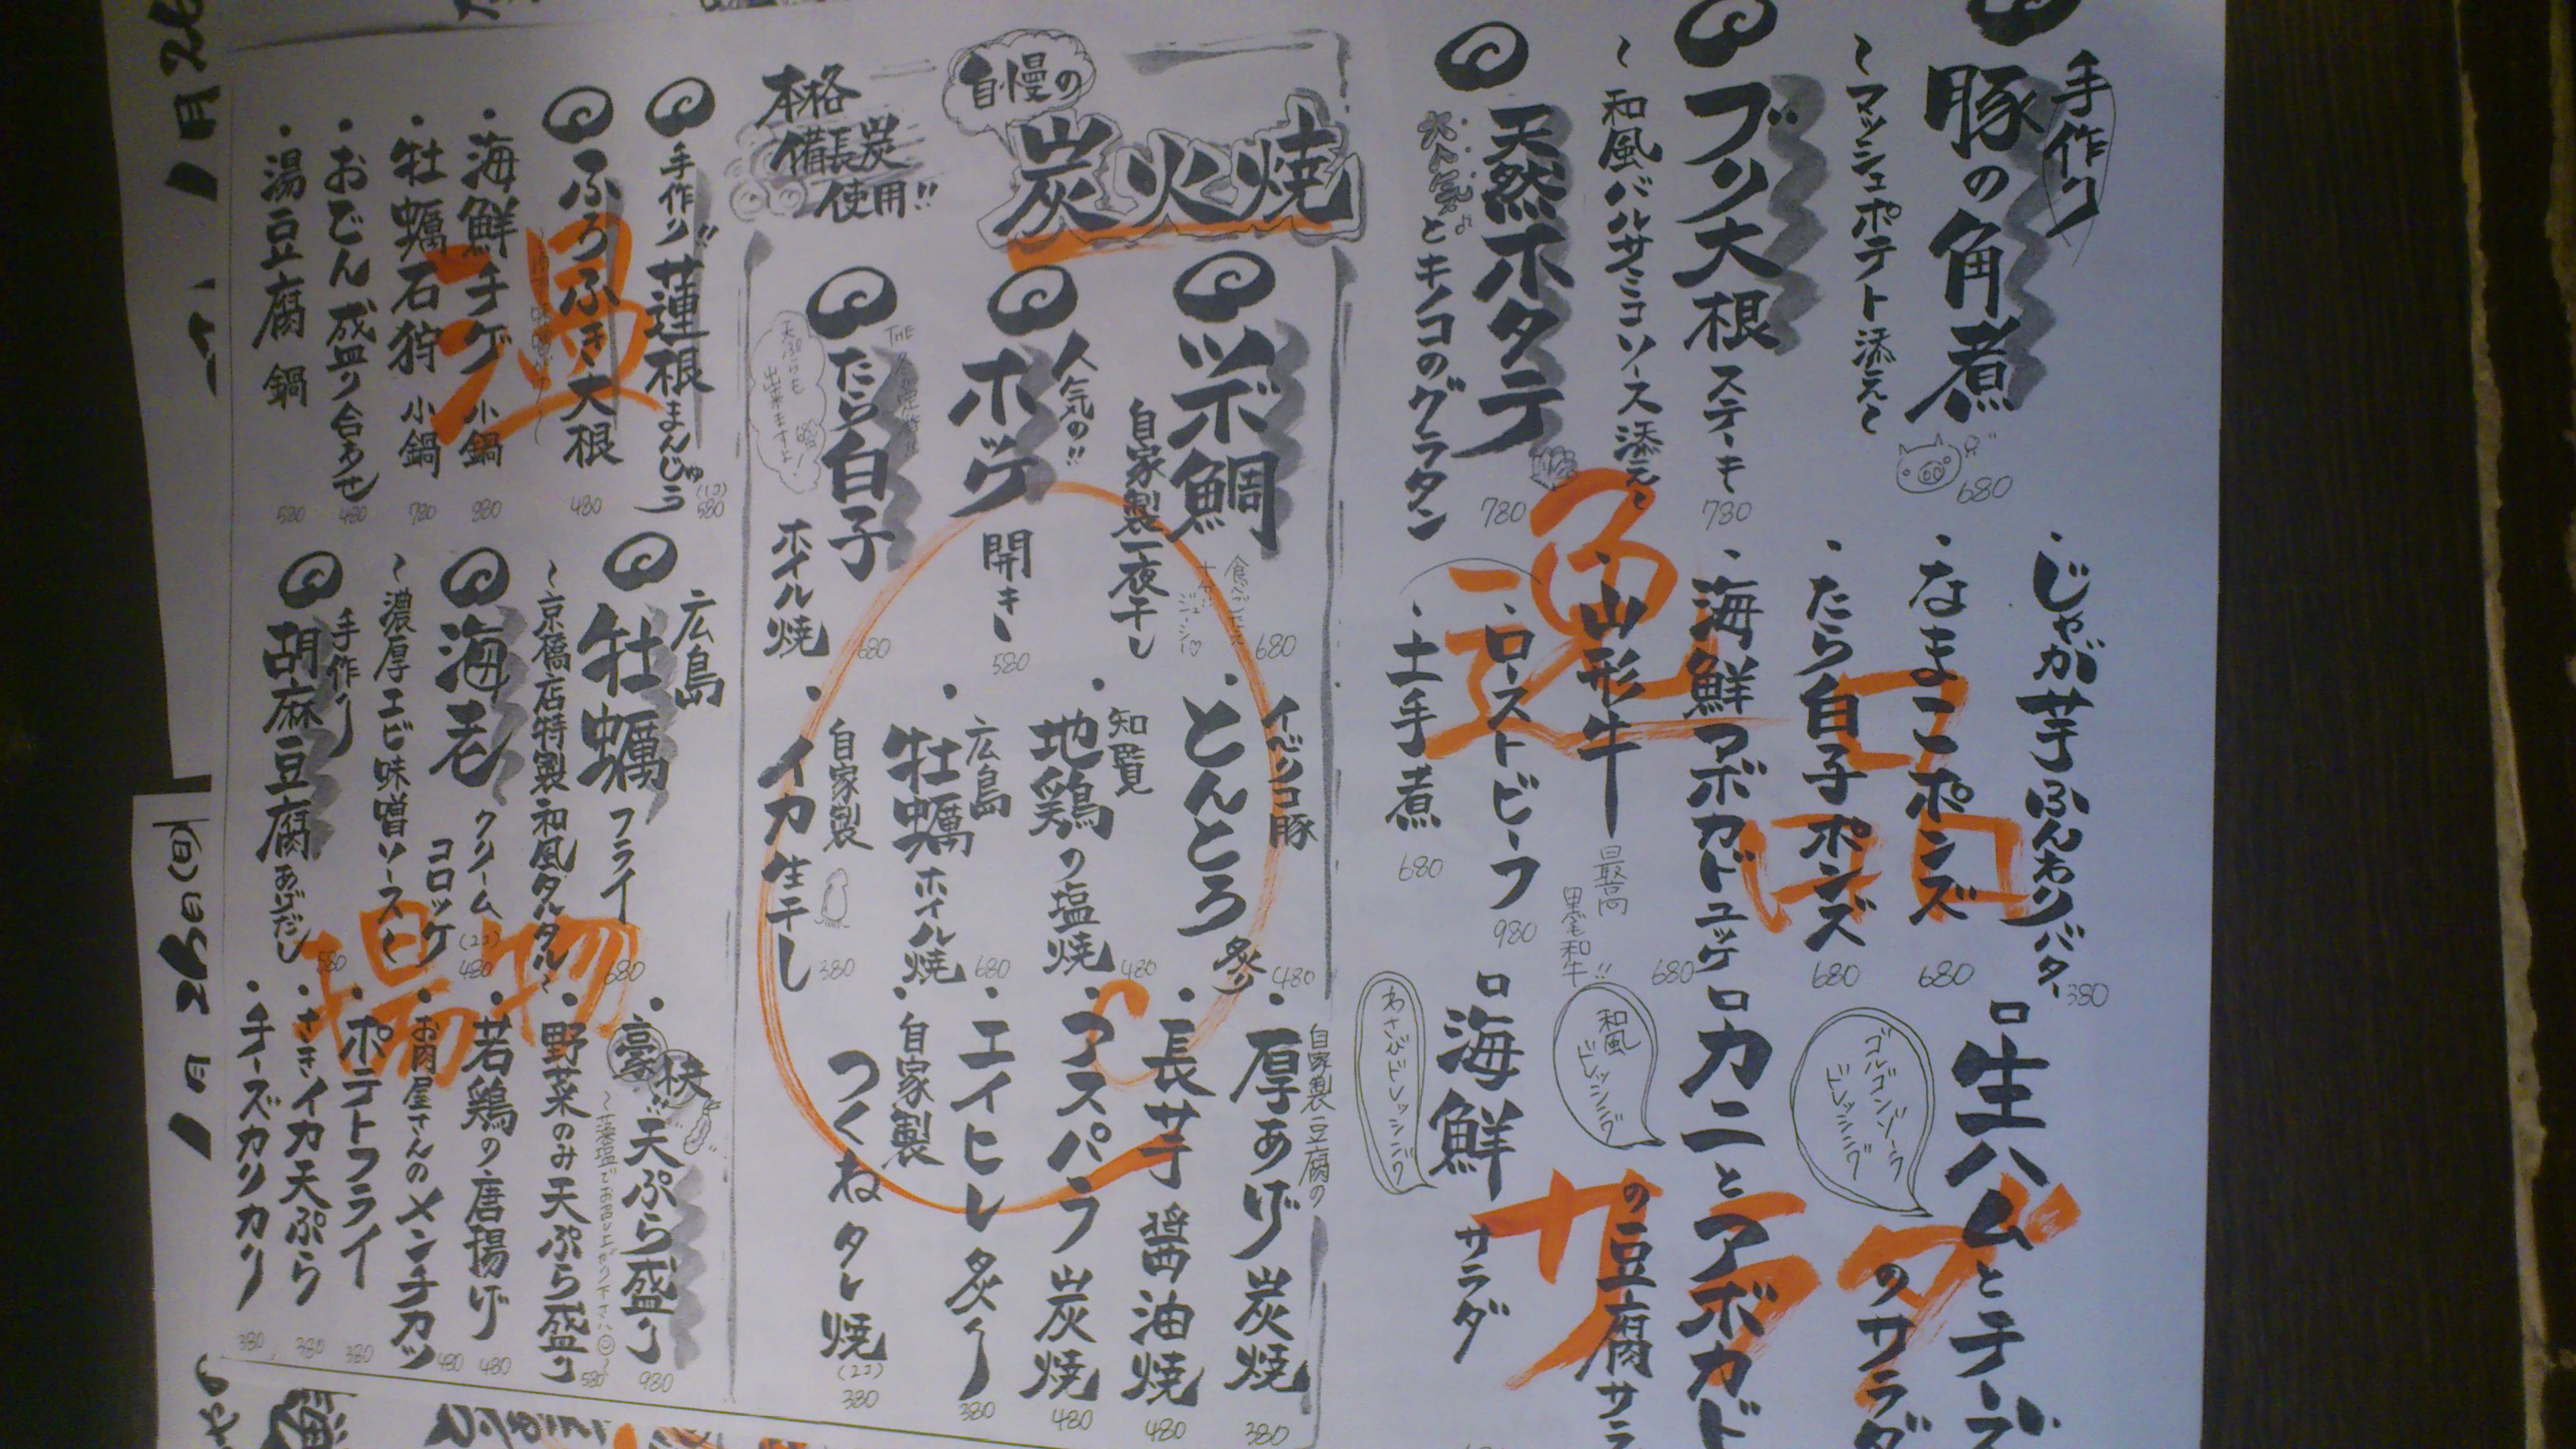 手作り
豚の角煮
〜マッシュポテト添え〜
680
ブリ大根ステーキ
〜和風バルサミコソース添え〜
780
天然ホタテ
大人気♪
とキノコのグラタン
780
・じゃが芋ふんわりバター
380
・なまこポンズ
680
・たら白子ポンズ
680
・海鮮アボカドユッケ
680
・山形牛
最高
黒毛和牛!!
・ローストビーフ
980
・土手煮
680
逸
品
生ハムとチーズ
のサラダ
ゴルゴンゾーラ
ドレッシング
カニとアボカド
の豆腐サラ
和風
ドレッシング
海鮮
サラダ
わさびドレッシング
サラダ
自慢の
炭火焼
本格
備長炭
使用!!
ツボ鯛
自家製一夜干し
680
人気の!!
ホッケ
開き
580
たら白子
ホイル焼
天ぷらにも
出来ますよ!
680
イベリコ豚
・とんとろ炙り
480
知覧
・地鶏の塩焼
480
広島
・牡蠣ホイル焼
680
自家製
・イカ生干し
380
自家製豆腐の
・厚あげ炭焼
380
・長芋醤油焼
480
・アスパラ炭焼
480
・エイヒレ炙り
380
・自家製
つくねタレ焼
(2コ)
380
手作り!!
蓮根まんじゅう
(1コ)
580
ふろふき大根
480
・海鮮チゲ小鍋
880
・牡蠣石狩小鍋
780
・おでん盛り合わせ
480
・湯豆腐鍋
580
温
広島
牡蠣フライ
〜京橋店特製和風タルタル〜
680
海老クリーム
コロッケ
〜濃厚エビ味噌ソース〜
(2コ)
480
手作り
胡麻豆腐あげだし
580
揚物
・豪快!!天ぷら盛り
〜藻塩でお召し上がり下さい〜
980
・野菜のみ天ぷら盛り
580
・若鶏の唐揚げ
480
・お肉屋さんのメンチカツ
480
・ポテトフライ
380
・さきイカ天ぷら
380
・チーズカリカリ
380
1月26
1月26日(日)